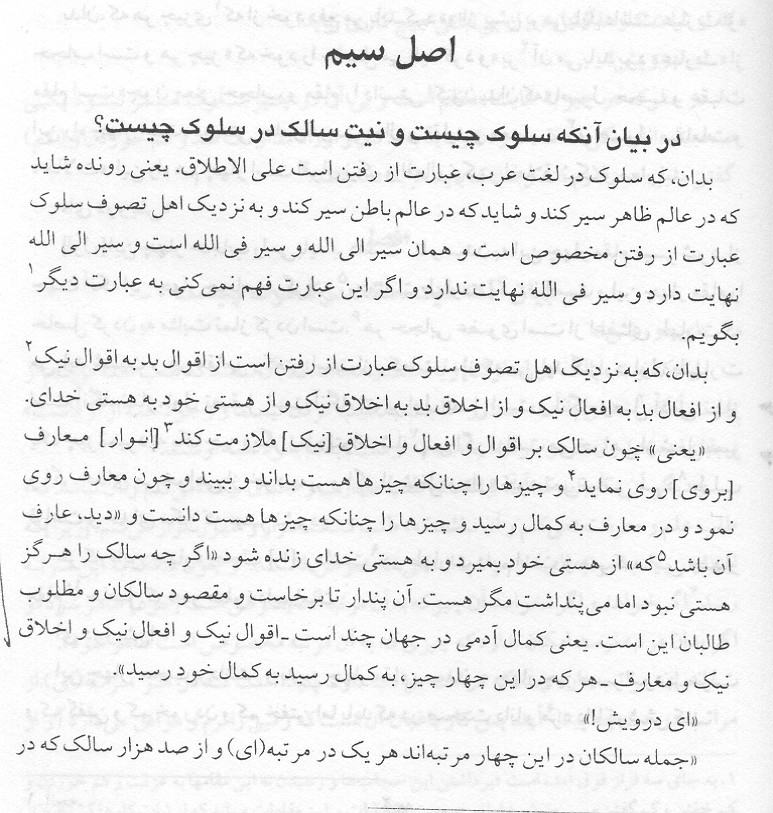 اصل سیم
در بیان آنکه سلوک چیست و نیت سالک در سلوک چیست؟
بدان، که سلوک در لغت عرب، عبارت از رفتن است علی الاطلاق. یعنی رونده شاید
که در عالم ظاهر سیر کند و شاید که در عالم باطن سیر کند و به نزدیک اهل تصوف سلوک
عبارت از رفتن مخصوص است و همان سیر الی الله و سیر فی الله است و سیر الی الله
نهایت دارد و سیر فی الله نهایت ندارد و اگر این عبارت فهم نمی‌کنی به عبارت دیگر۱
بگویم.
بدان، که به نزدیک اهل تصوف سلوک عبارت از رفتن است از اقوال بد به اقوال نیک۲
و از افعال بد به افعال نیک و از اخلاق بد به اخلاق نیک و از هستی خود به هستی خدای.
«یعنی» چون سالک بر اقوال و افعال و اخلاق [نیک] ملازمت کند۳ [انوار] معارف
[بروی] روی نماید۴ و چیزها را چنانکه چیزها هست بداند و ببیند و چون معارف روی
نمود و در معارف به کمال رسید و چیزها را چنانکه چیزها هست دانست و «دید. عارف
آن باشد۵ که» از هستی خود بمیرد و به هستی خدای زنده شود «اگر چه سالک را هرگز
هستی نبود اما می‌پنداشت مگر هست. آن پندار تا برخاست و مقصود سالکان و مطلوب
طالبان این است. یعنی کمال آدمی در جهان چند است ـ اقوال نیک و افعال نیک و اخلاق
نیک و معارف ـ هر که در این چهار چیز، به کمال رسید به کمال خود رسید».
«ای درویش!»
«جمله سالکان در این چهار مرتبه‌اند هر یک در مرتبه(ای) و از صد هزار سالک که در